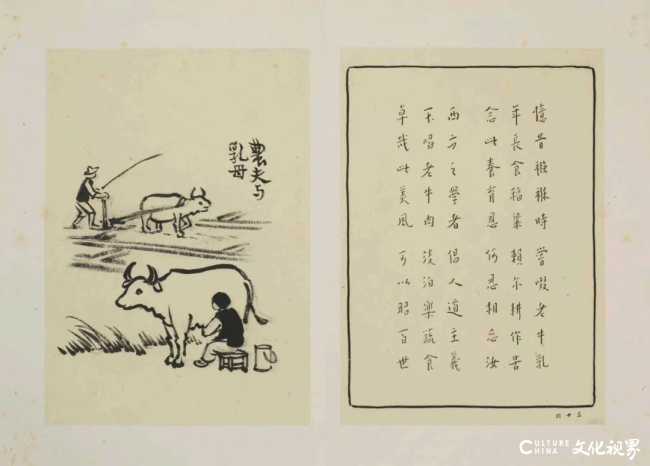 農夫与
乳母
憶昔襁褓時 嘗啜老牛乳
年長食稻粱 賴尔耕作苦
念此養育恩 何忍相忘汝
西方之學者 倡人道主義
不啗老牛肉 淡泊樂蔬食
卓哉此美風 可以昭百世
三十六
CULTURE CHINA 文化视界